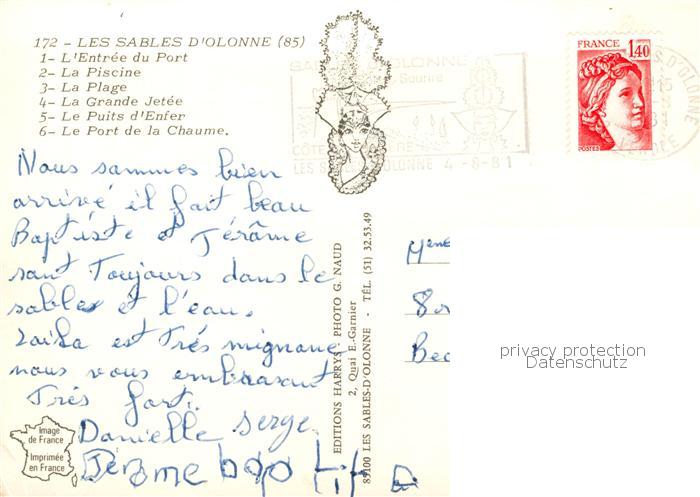 172 - LES SABLES D'OLONNE (85)
1- L'Entrée du Port
2- La Piscine
3- La Plage
4- La Grande Jetée
5- Le Puits d'Enfer
6- Le Port de la Chaume.
OLONNE
Sourire
LES OLONNE 4-8-81
FRANCE
1,40
POSTES
Nous sommes bien
arrivé il fait beau
Baptiste et Jérôme
sont Toujours dans le
sables et l'eau.
est Très mignonne
nous vous embrassent
Très fort.
Danielle Serge
Jérome
EDITIONS HARRYS - PHOTO G. NAUD
2, Quai E.-Garnier
85100 LES SABLES-D'OLONNE - TÉL. (51) 32.53.49
privacy protection
Datenschutz
Image
de France
Imprimée
en France